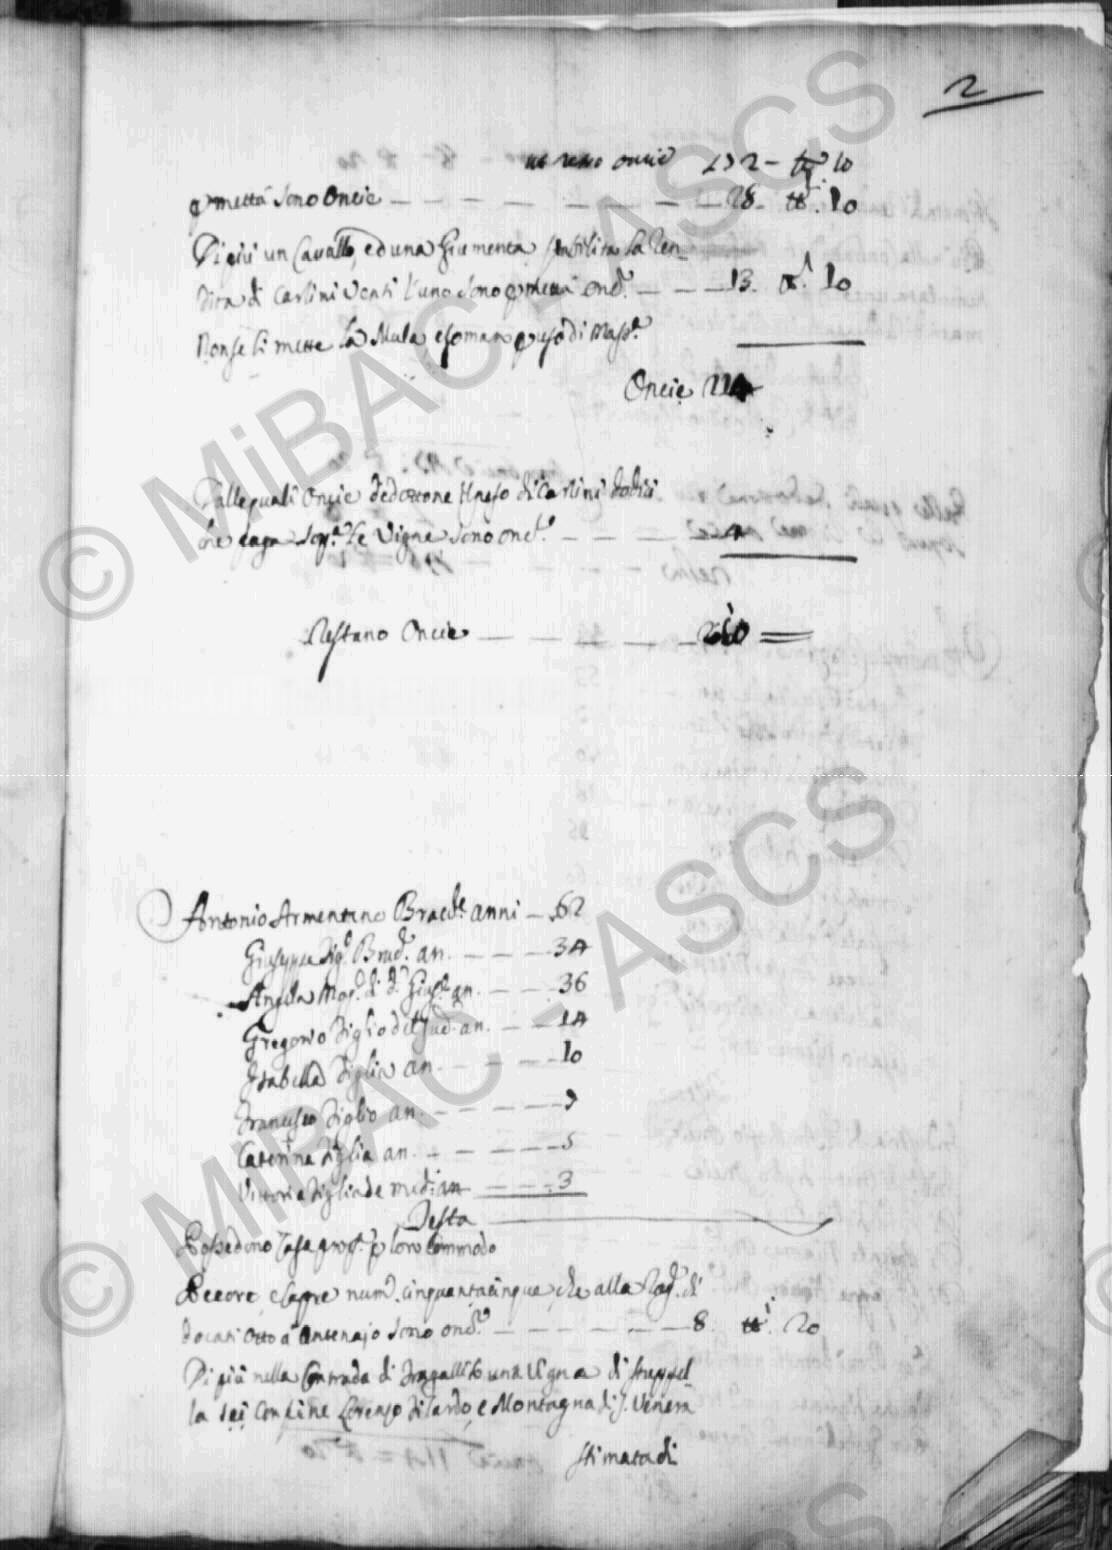 2
oncie 192 - 10
metta sono oncie 28 10
Di più un Cavallo, ed una Giumenta la ren
dita di Carlini venti l'uno sono p metta onc. 13. 10
Non se li mette la Mula e somaro p uso di Mass.ª
Oncie 214
Dalle quali Oncie dedottone il peso di Carlini dodici
che paga sop.ª le Vigne sono onc.e 4
Restano Oncie 210
Antonio Armentano Bracc.le anni 62
Giuseppe fig.º Brac. an. 34
Angela Mog.e di d.º Gius.e an. 36
Gregorio figlio del sud. an. 14
Isabella figlia an. 10
Francesco figlio an. 9
Caterina figlia an. 5
Vittoria figlia de med. an 3
Testa
Possedono Casa prop. p loro commodo
Pecore, e Capre num. cinquantacinque, che alla rag. di
docati otto a Antenajo sono onc.e 8. 20
Di più nella Contrada di Fragallito una Vigna di stuppel
la sei confine Lorenzo Dilardo, e Montagna di S. Venera
stimata di
© MiBAC - ASCS
© MiBAC - ASCS